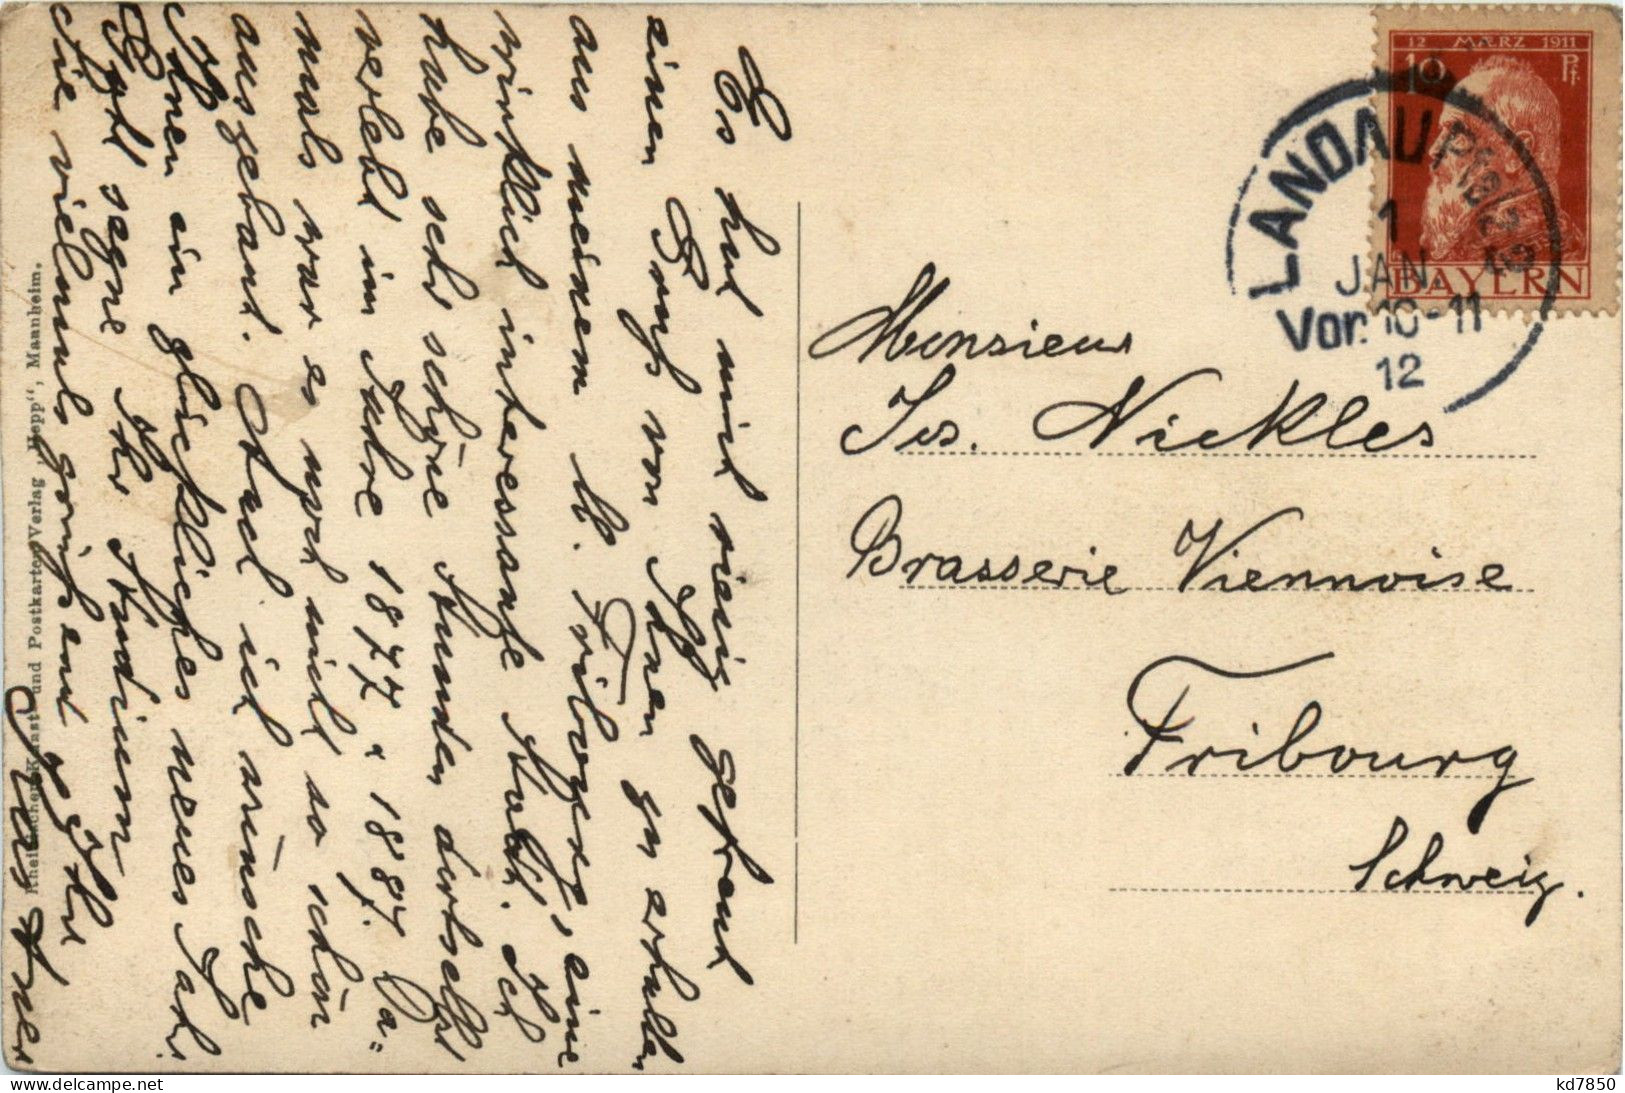 Es hat mich riesig gefreut
einen Gruß von Ihnen zu erhalten
aus meinem lb. Fribourg, eine
wirklich interessante Stadt. Ich
habe sehr schöne Stunden dortselbst
verlebt im Jahre 1877 & 1887. Da=
mals war es noch nicht so schön
ausgebaut. Auch ich wünsche
Ihnen ein glückliches neues Jahr.
Gott segne Ihr Studium
Sie vielmals grüßend Ihr
Rheinische Kunst- und Postkarten-Verlag „Hepp“, Mannheim.
12 MÆRZ 1911
10 Pf.
BAYERN
LANDAU Pfalz
1
JAN.
Vor. 10-11
12
Monsieur
Jos. Nickles
Brasserie Viennoise
Fribourg
Schweiz.
kd7850